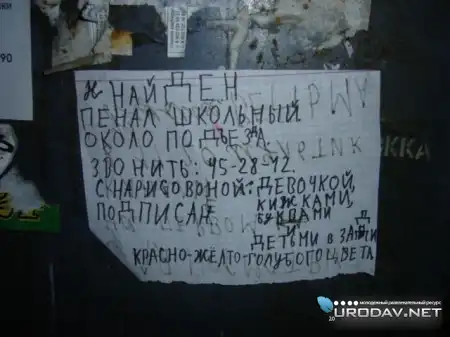 НАЙДЕН
ПЕНАЛ ШКОЛЬНЫЙ
ОКОЛО ПОДЪЕЗДА.
ЗВОНИТЬ: 45-28-42.
С НАРИСОВОНОЙ: ДЕВОЧКОЙ,
КИЖКАМИ,
ПОДПИСАН БУКВАМИ
И
ДЕТЬМИ В
КРАСНО-ЖЁЛТО-ГОЛУБОГО ЦВЕТА
90
молодежный развлекательный ресурс
URODAV.NET